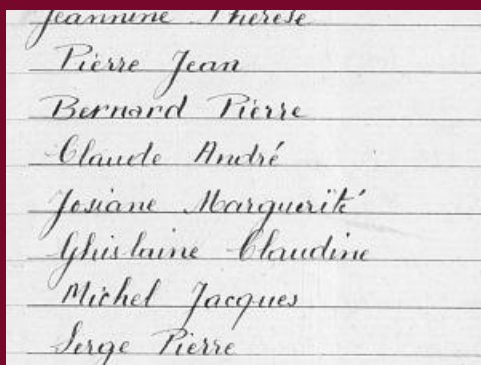 Jeannine Thérèse
Pierre Jean
Bernard Pierre
Claude André
Josiane Marguerité
Ghislaine Claudine
Michel Jacques
Serge Pierre